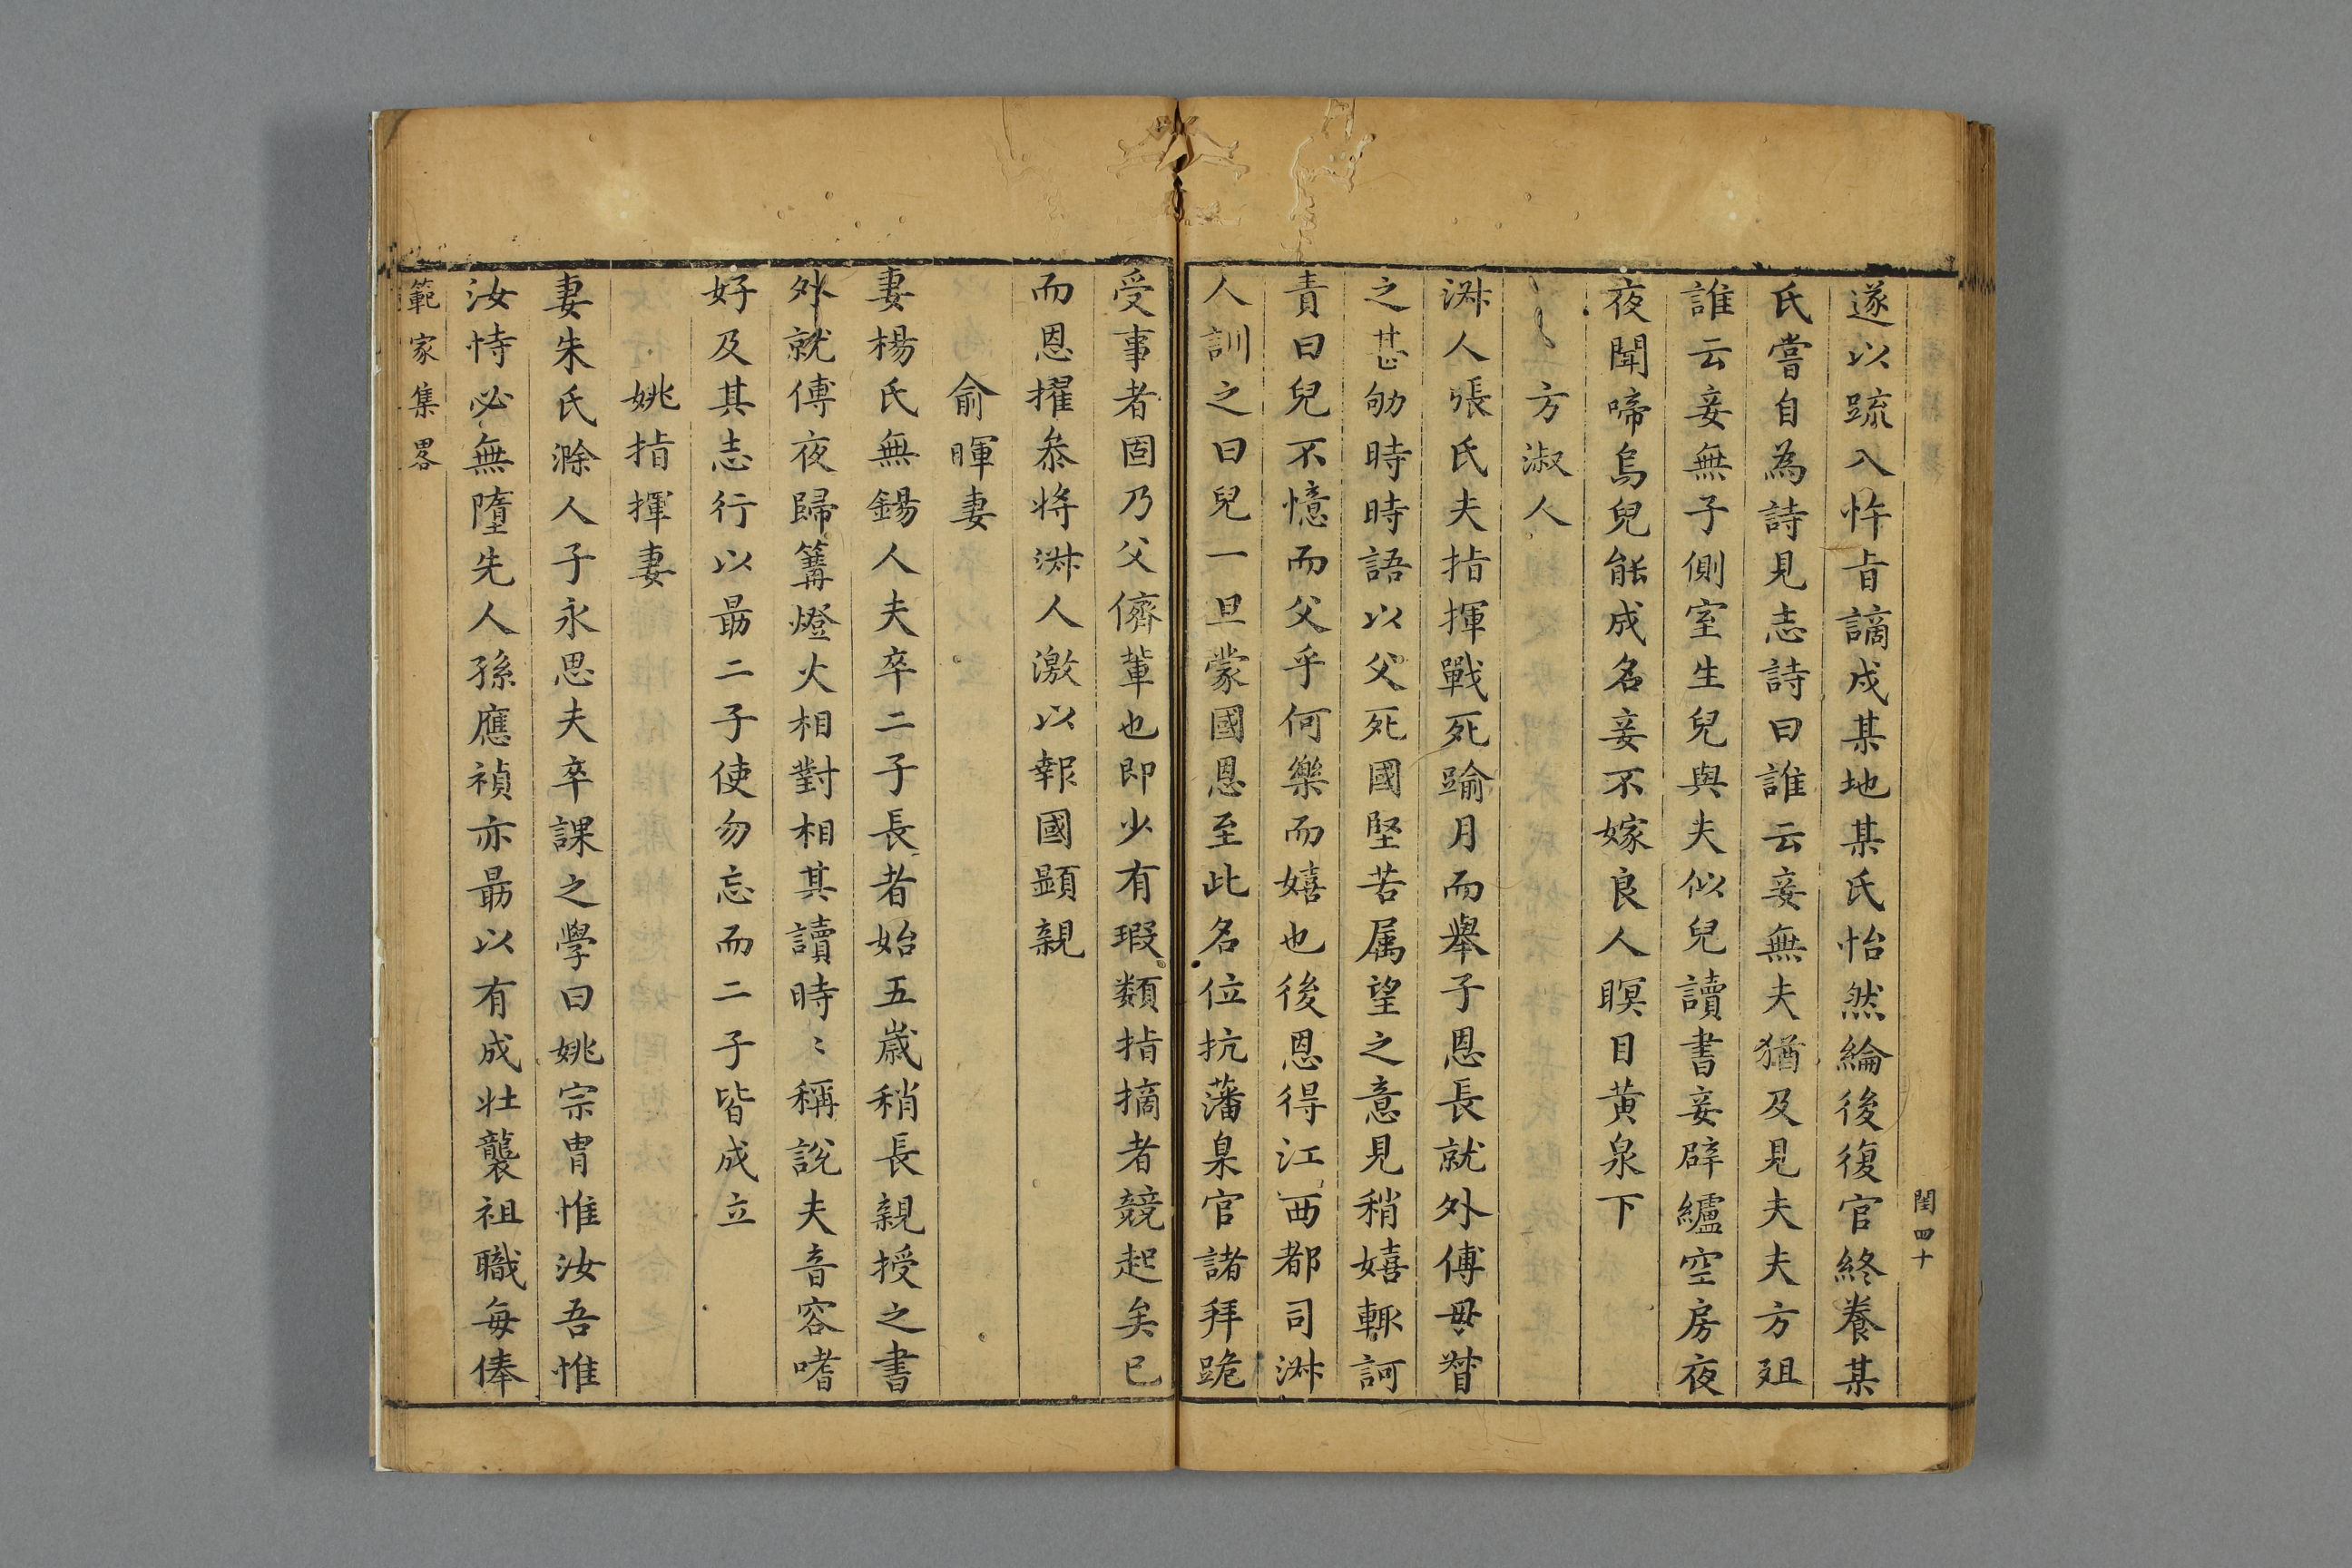 閨四十
遂以疏入忤㫖謫戍某地某氏怡然綸後復官終養某
氏嘗自為詩見志詩曰誰云妾無夫猶及見夫夫方殂
誰云妾無子側室生兒與夫似兒讀書妾辟纑空房夜
夜聞啼烏兒能成名妾不嫁良人瞑目黃泉下
方淑人
淋人張氏夫指揮戰死踰月而舉子恩長就外傅毋督
之甚劬時時語以父死國堅苦属望之意見稍嬉輒訶
責曰兒不憶而父乎何樂而嬉也後恩得江西都司淋
人訓之曰兒一旦蒙國恩至此名位抗藩臬官諸拜跪
受事者固乃父儕軰也即少有瑕纇指摘者競起矣已
而恩擢叅將淋人激以報國顕親
俞暉妻
妻楊氏無錫人夫卒二子長者始五歲稍長親授之書
外就傅夜歸篝燈火相對相其讀時〻稱說夫音容嗜
好及其志行以勗二子使勿忘而二子皆成立
姚指揮妻
妻朱氏滁人子永思夫卒課之學曰姚宗胄惟汝吾惟
汝恃必無墮先人孫應禎亦勗以有成壮襲祖職每俸
範家集畧